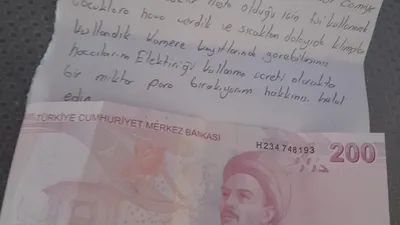 hasta olduğu için tüp kullandık
Çocuklara hava verdik ve sıcaktan dolayıda klimayı
kullandık. Kamera kayıtlarında görebilirsiniz
hocalarım Elektiriği kullanma ücreti olaraktan
bir miktar para bırakıyorum hakkınızı helal
edin
TÜRKİYE CUMHURİYET MERKEZ BANKASI
H234748193 200